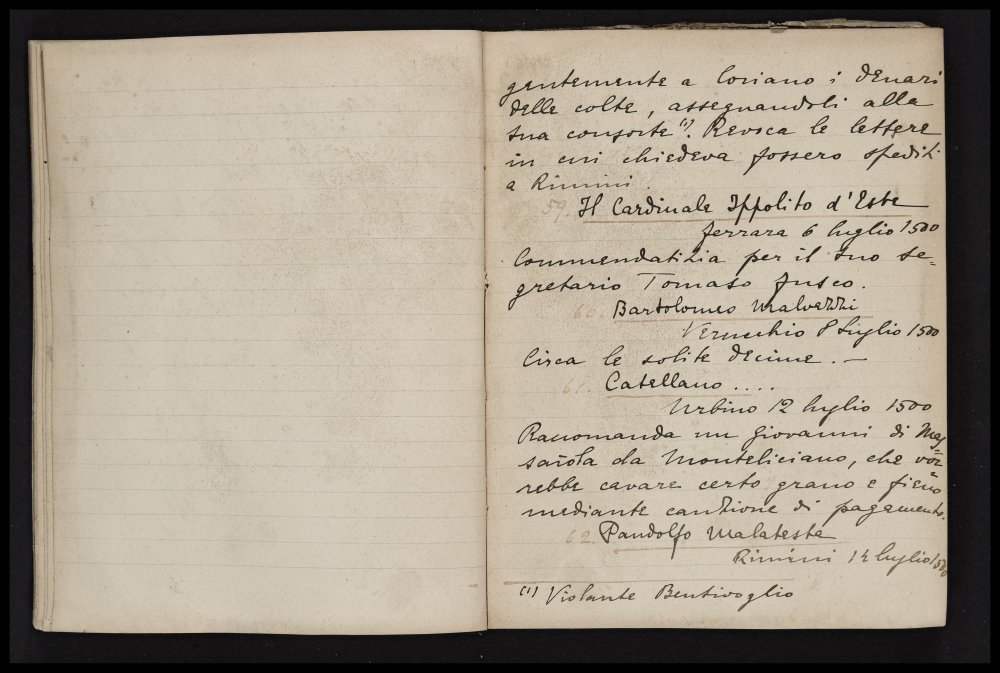 gentemente a Coriano i denari
delle colte, assegnandoli alla
sua consorte (1). Revoca le lettere
in cui chiedeva fossero spediti
a Rimini.
59. Il Cardinale Ippolito d'Este
Ferrara 6 luglio 1500
Commendatizia per il suo se=
gretario Tomaso Fusco.
60. Bartolomeo Malvezzi
Verucchio 8 Luglio 1500
Circa le solite decime. —
61. Catellano ....
Urbino 12 luglio 1500
Raccomanda un Giovanni di Mas=
saiola da Monteliciano, che vor=
rebbe cavare certo grano e fieno
mediante cauzione di pagamento.
62. Pandolfo Malatesta
Rimini 14 luglio 1500
(1) Violante Bentivoglio